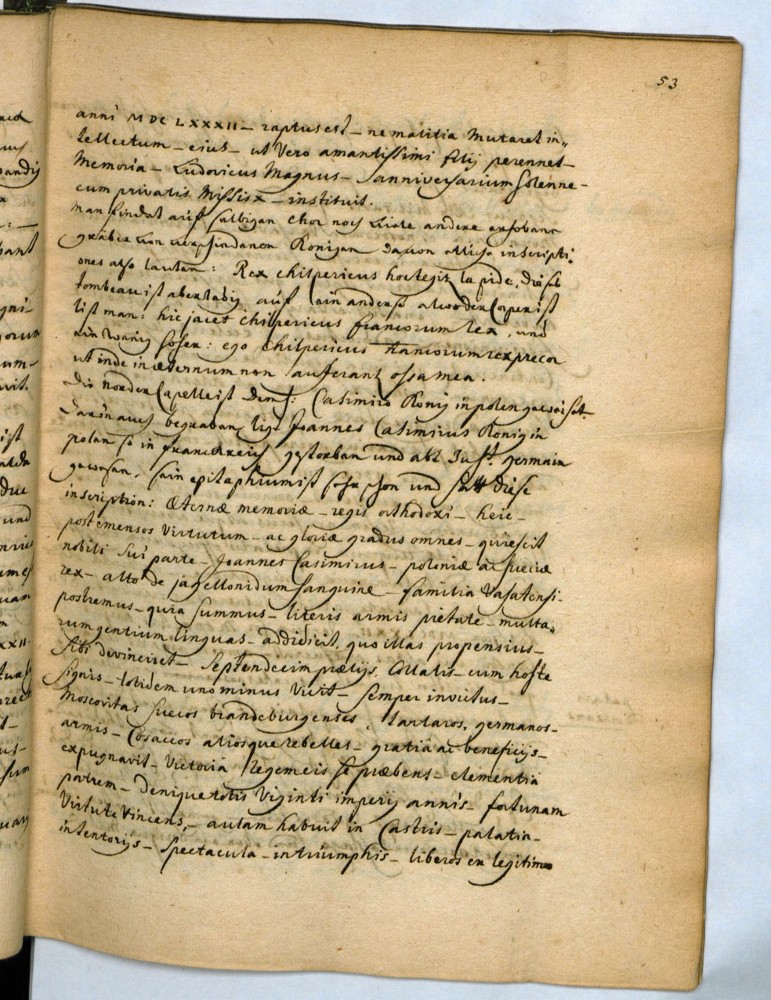 53
anni MDCLXXXII – raptus est – ne malitia mutaret in„
tellectum – eius – ut vero amantissimi filij perennet –
memoria – Ludovicus Magnus – anniversarium solenne –
cum privatis missis – instituit.
man findet auf selbigen Chor noch viele andere erhobene
gräber von verschiedenen Königen davon etliche inscripti„
ones also lauten: Rex Chilpericus hoc tegit lapide, diese
tombeau ist aber ledig auf ein anders alwo der Corper ist
list man: hic jacet Chilpericus francorum rex, und
ein wenig höher: ego Chilpericus francorum rex precor
ut inde in æternum non auferant ossa mea.
die Norder Capelle ist dem St: Casimiro König in polen geweihet
darin auch begraben ligt Joannes Casimirus König in
polen so in franckreich gestorben und abt zu St. germain
gewesen, sein epitaphium ist sehr schon und hatt diese
inscription: Æternæ memoriæ – regis orthodoxi – heic –
post emensos virtutum – ac gloriæ gradus omnes – quiescit
nobili sui parte – Joannes Casimirus – poloniæ ac sueciæ
rex – alto de jagellonidum sanguine – familia Vasatensi –
postremus – quia summus – literis armis pietate – multa„
rum gentium linguas – addidicit, quo illas propensius –
sibi devinciret – septendecim prælijs collatis – cum hoste
signis – totidem uno minus vicit – semper invictus –
Moscovitas suecos brandeburgenses, tartaros, germanos –
armis – Cosaccos aliosque rebelles – gratiâ ac beneficijs –
expugnavit – victoria regem eis se præbens – clementia
patrem – denique totis viginti imperij annis – fortunam
virtute vincens – aulam habuit in Castris – palatia –
in tentorijs – spectacula – in triumphis – liberos ex legitimo